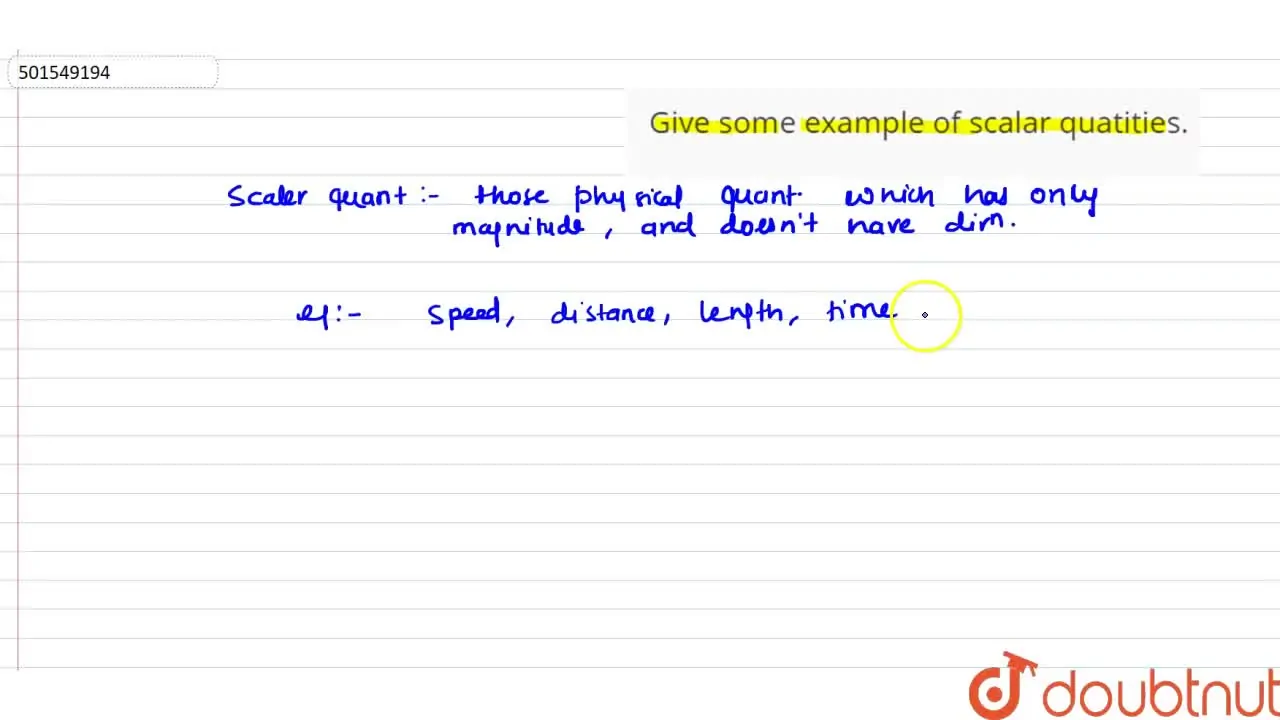 501549194
Give some example of scalar quatities.
Scaler quant :- those physical quant. which has only
magnitude, and doesn't have dirn.
eg:- speed, distance, length, time.
doubtnut